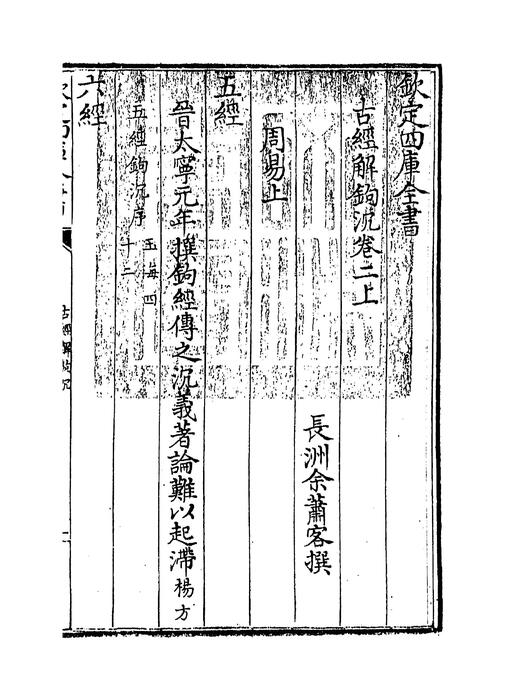 欽定四庫全書
古經解鉤沉卷二上
長洲余蕭客撰
周易上
五經
晉太寧元年撰鉤經傳之沉義著論難以起滯楊方
五經鉤沉序
玉海四
十二
六經
古經解鉤沉